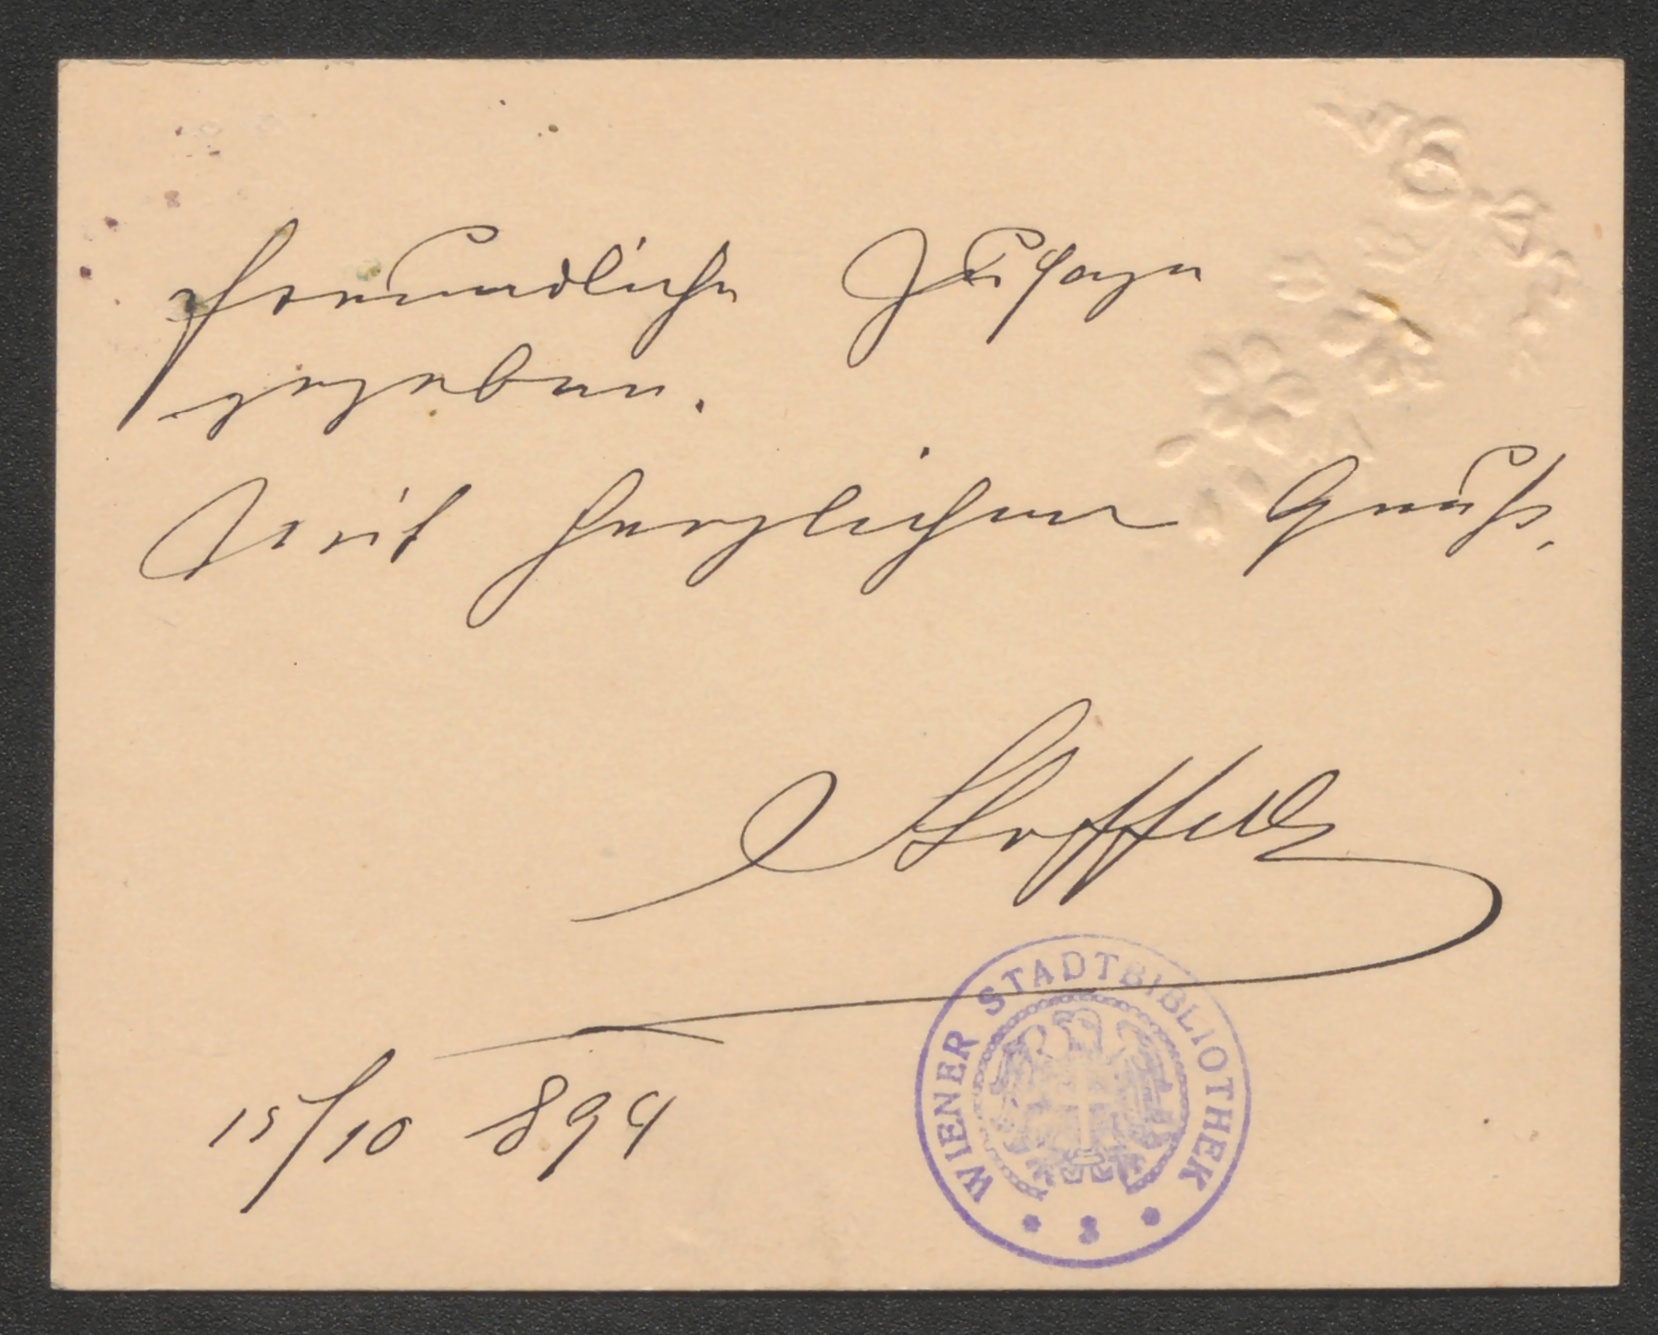 freundliche Zusage
gegeben.
Mit herzlichem Gruß.
15/10 894
WIENER STADTBIBLIOTHEK